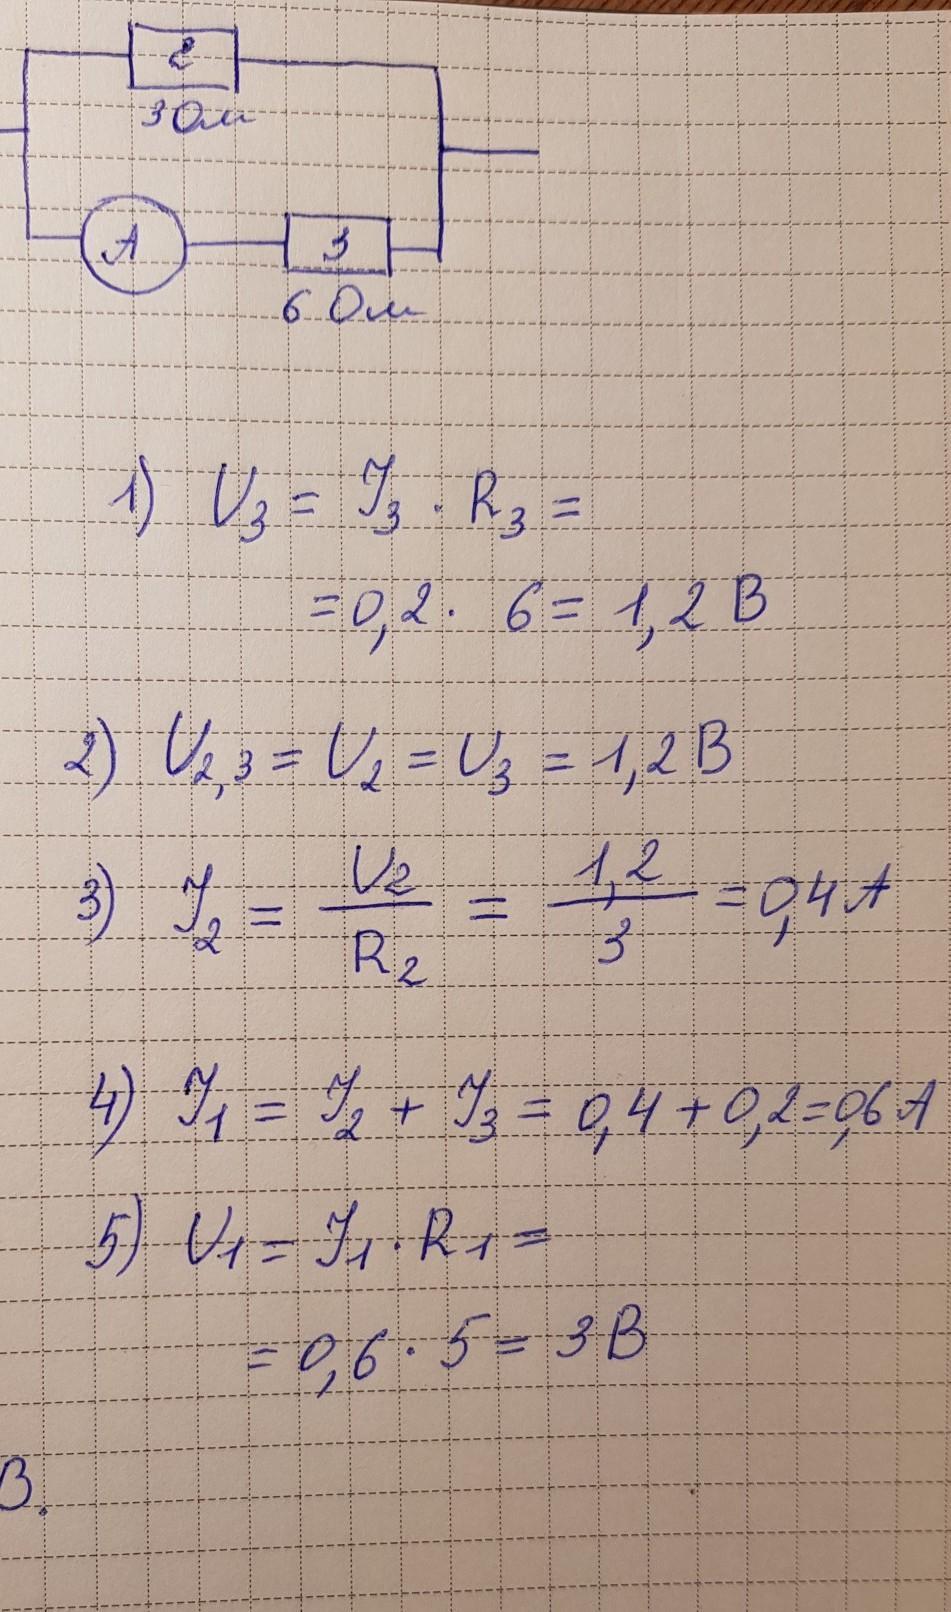 2
3 Ом
А
3
6 Ом
1) U₃ = I₃ · R₃ =
= 0,2 · 6 = 1,2 В
2) U₂,₃ = U₂ = U₃ = 1,2 В
3) I₂ = U₂/R₂ = 1,2/3 = 0,4 А
4) I₁ = I₂ + I₃ = 0,4 + 0,2 = 0,6 А
5) U₁ = I₁ · R₁ =
= 0,6 · 5 = 3 В
В.